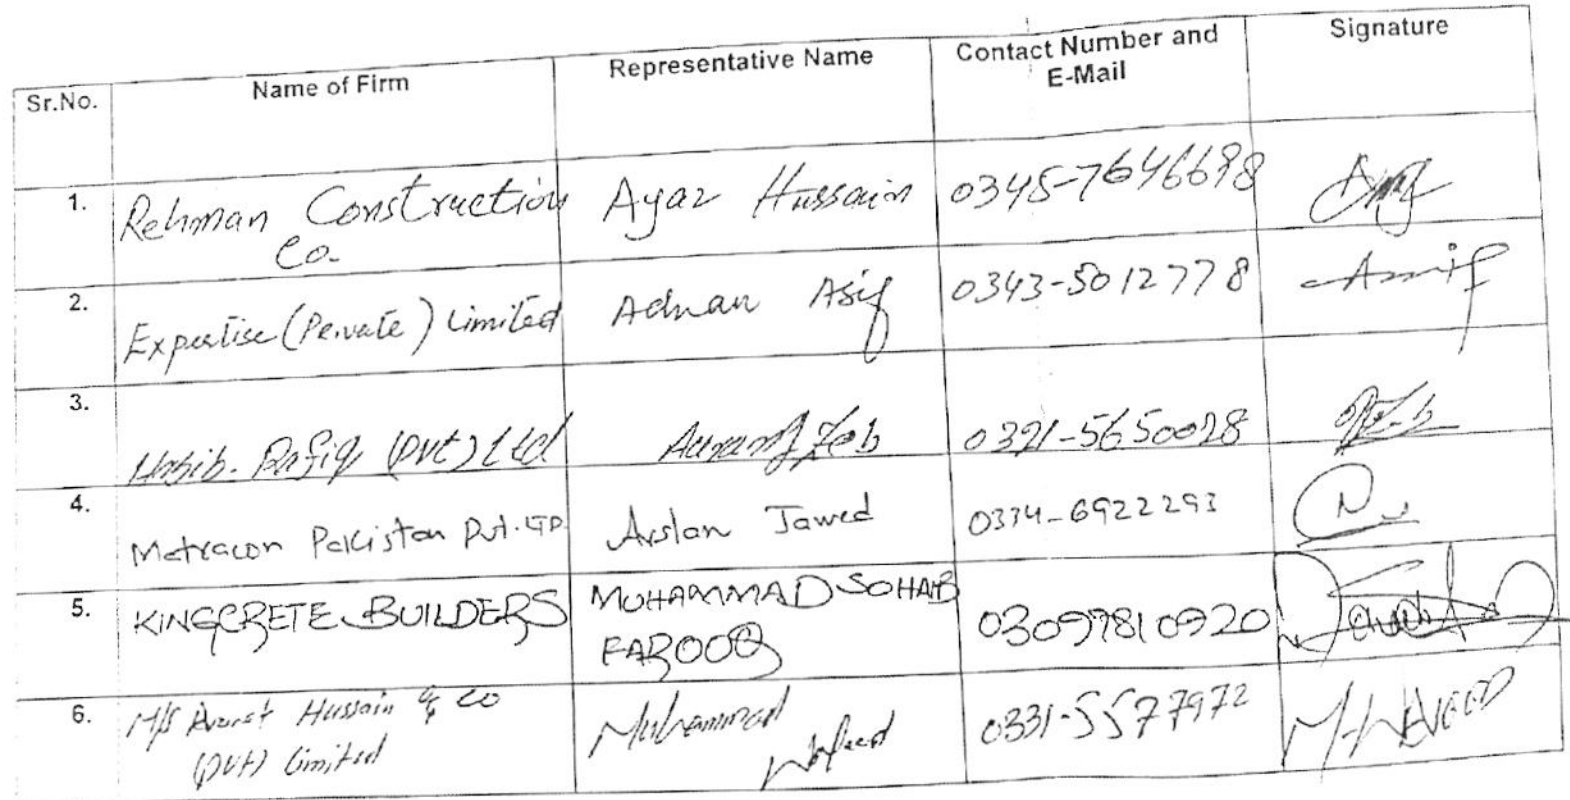 Sr.No. Name of Firm Representative Name Contact Number and E-Mail Signature
1. Rehman Construction Co. Ayaz Hussain 0345-7646698
2. Expertise (Private) Limited Adnan Asif 0343-5012778
3. Habib Rafiq (Pvt) Ltd Aurangzeb 0321-5650028
4. Matracon Pakistan Pvt. LTD Arslan Jawed 0334-6922293
5. KINGCRETE BUILDERS MUHAMMAD SOHAIB FAROOQ 03097810920
6. M/S Hussain & CO (Pvt) Limited Muhammad 0331-5577972